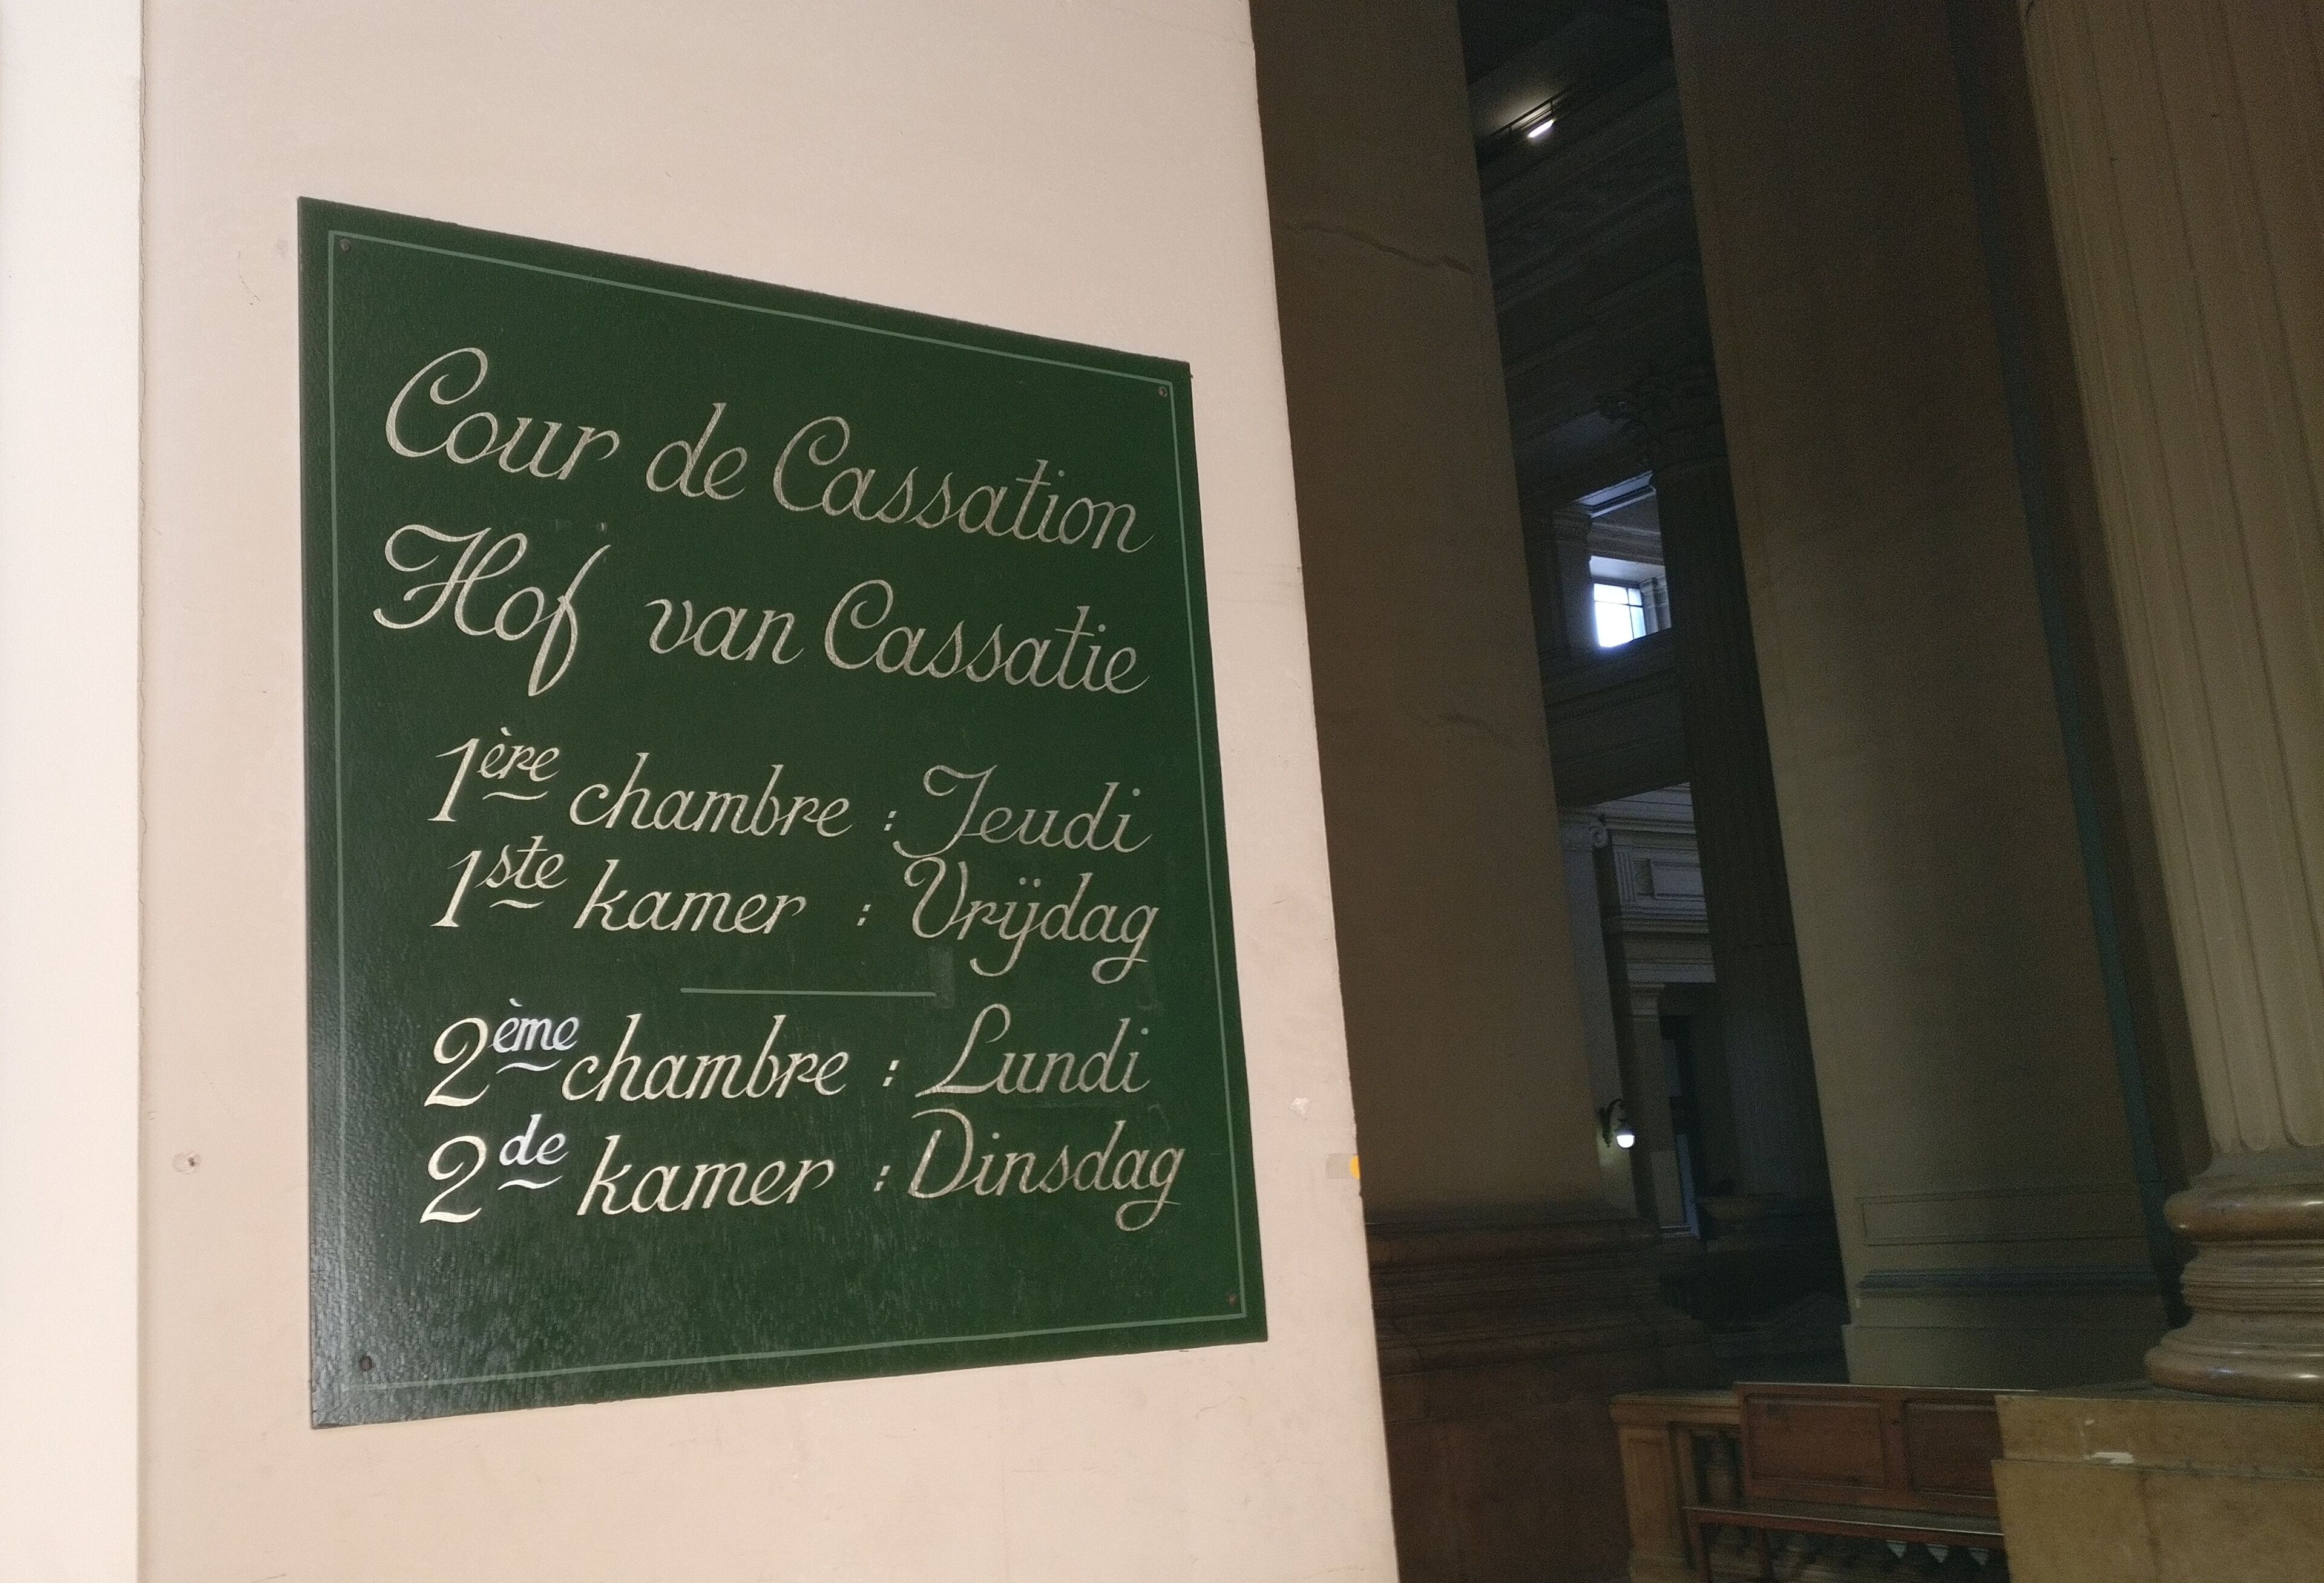 Cour de Cassation
Hof van Cassatie
1ère chambre : Jeudi
1ste kamer : Vrijdag
2ème chambre : Lundi
2de kamer : Dinsdag